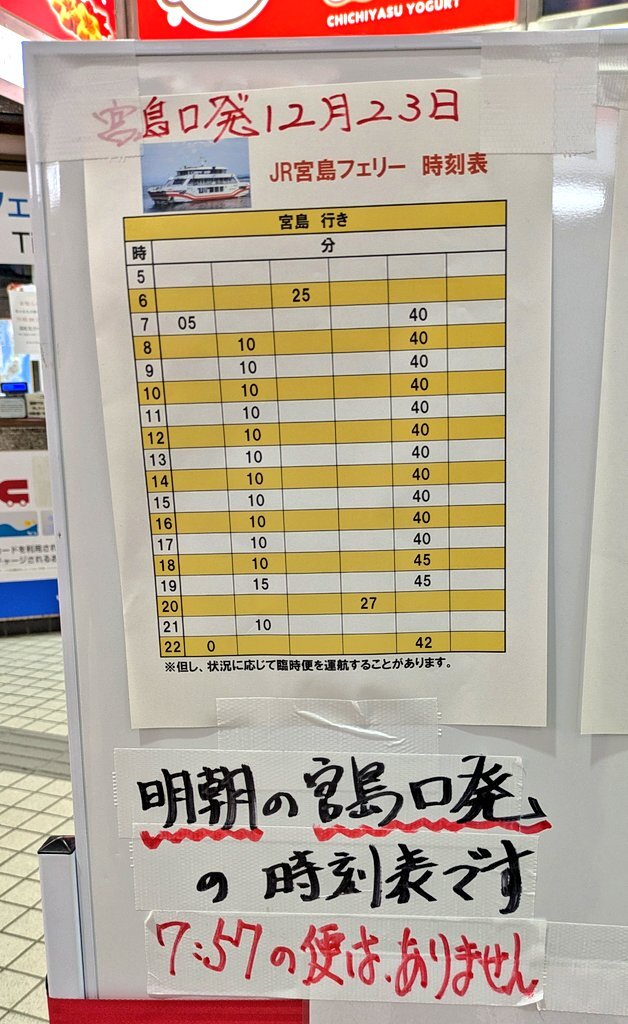 CHICHIYASU YOGURT
宮島口発12月23日
JR宮島フェリー 時刻表
宮島 行き
時 分
5
6 25
7 05 40
8 10 40
9 10 40
10 10 40
11 10 40
12 10 40
13 10 40
14 10 40
15 10 40
16 10 40
17 10 40
18 10 45
19 15 45
20 27
21 10
22 0 42
※但し、状況に応じて臨時便を運航することがあります。
明朝の宮島口発
の時刻表です
7:57の便は、ありません